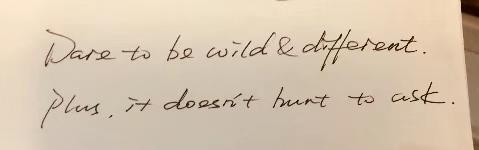 Dare to be wild & different.
Plus, it doesn't hurt to ask.